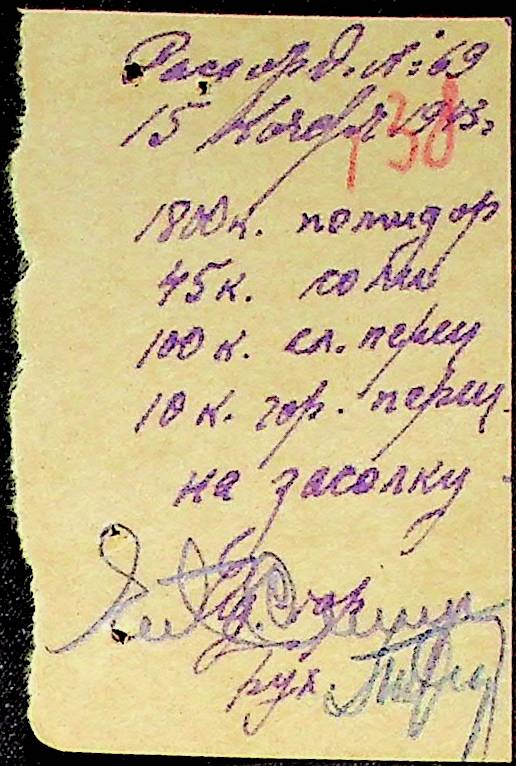 Распоряд. №: 69
15 Ноября 1943.
138
1800 к. помидор
45 к. соли
100 к. сл. перец
10 к. гор. перец.
на засолку -
Бух.